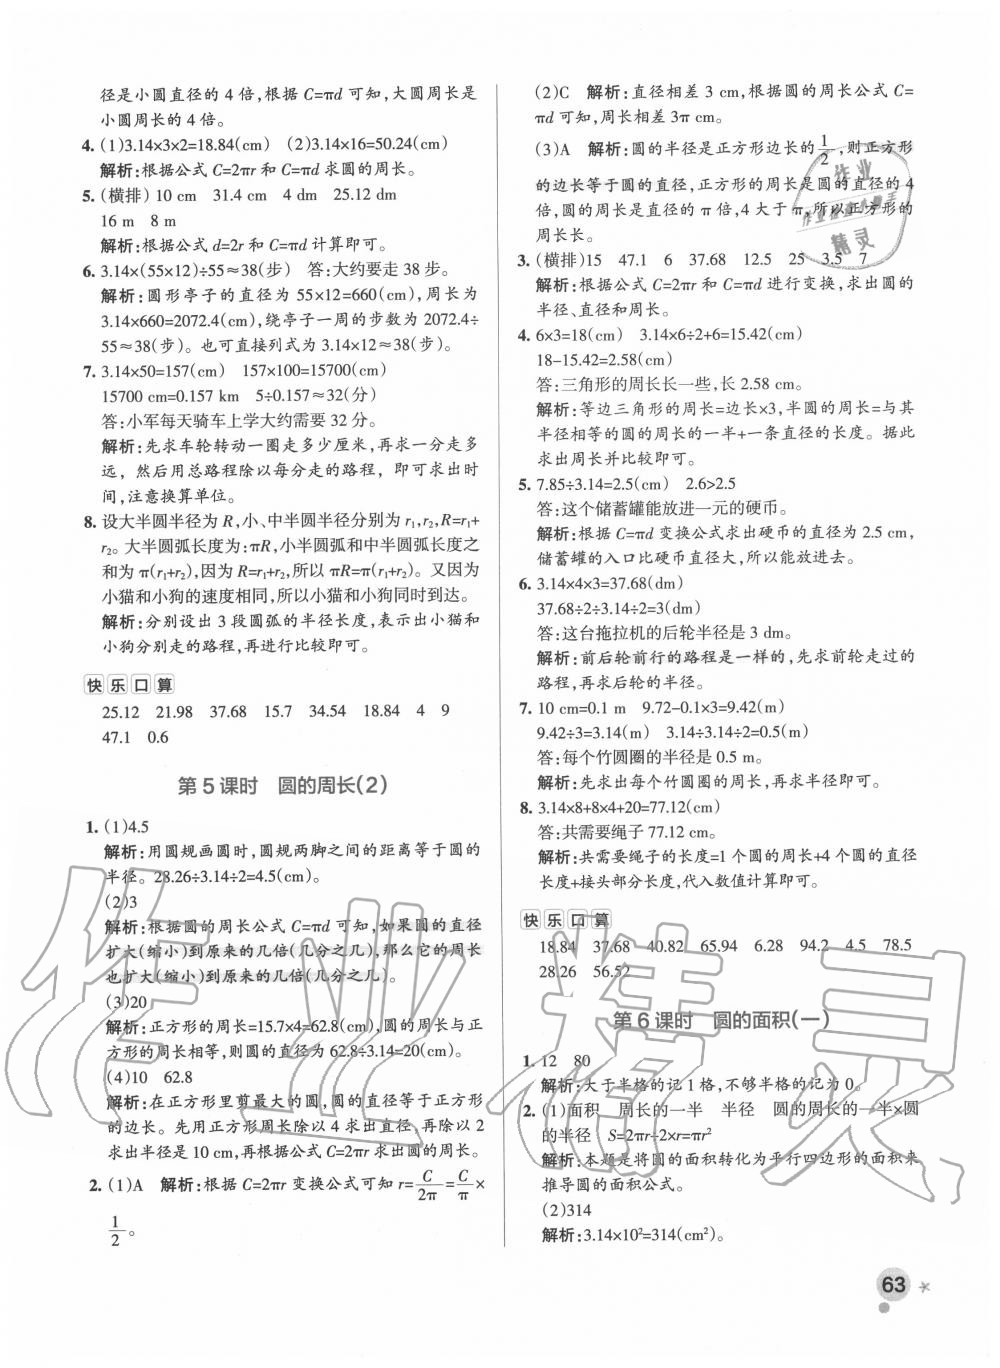 径是小圆直径的 4 倍,根据 C=πd 可知,大圆周长是
小圆周长的 4 倍。
4. (1)3.14×3×2=18.84(cm) (2)3.14×16=50.24(cm)
解析:根据公式 C=2πr 和 C=πd 求圆的周长。
5. (横排) 10 cm 31.4 cm 4 dm 25.12 dm
16 m 8 m
解析:根据公式 d=2r 和 C=πd 计算即可。
6. 3.14×(55×12)÷55≈38(步) 答:大约要走 38 步。
解析:圆形亭子的直径为 55×12=660(cm),周长为
3.14×660=2072.4(cm),绕亭子一周的步数为 2072.4÷
55≈38(步)。也可直接列式为 3.14×12≈38(步)。
7. 3.14×50=157(cm) 157×100=15700(cm)
15700 cm=0.157 km 5÷0.157≈32(分)
答:小军每天骑车上学大约需要 32 分。
解析:先求车轮转动一圈走多少厘米,再求一分走多
远，然后用总路程除以每分走的路程，即可求出时
间,注意换算单位。
8. 设大半圆半径为 R,小、中半圆半径分别为 r₁,r₂,R=r₁+
r₂。大半圆弧长度为:πR,小半圆弧和中半圆弧长度之
和为 π(r₁+r₂),因为 R=r₁+r₂,所以 πR=π(r₁+r₂)。又因为
小猫和小狗的速度相同,所以小猫和小狗同时到达。
解析:分别设出 3 段圆弧的半径长度,表示出小猫和
小狗分别走的路程,再进行比较即可。
快乐口算
25.12 21.98 37.68 15.7 34.54 18.84 4 9
47.1 0.6
第 5 课时 圆的周长(2)
1. (1)4.5
解析:用圆规画圆时,圆规两脚之间的距离等于圆的
半径。28.26÷3.14÷2=4.5(cm)。
(2)3
解析:根据圆的周长公式 C=πd 可知,如果圆的直径
扩大(缩小)到原来的几倍(几分之几),那么它的周长
也扩大(缩小)到原来的几倍(几分之几)。
(3)20
解析:正方形的周长=15.7×4=62.8(cm),圆的周长与正
方形的周长相等,则圆的直径为 62.8÷3.14=20(cm)。
(4)10 62.8
解析:在正方形里剪最大的圆,圆的直径等于正方形
的边长。先用正方形周长除以 4 求出直径,再除以 2
求出半径是 10 cm,再根据公式 C=2πr 求出圆的周长。
2. (1)A 解析:根据 C=2πr 变换公式可知 r=C/2π=C/π×
1/2。
(2)C 解析:直径相差 3 cm,根据圆的周长公式 C=
πd 可知,周长相差 3π cm。
(3)A 解析:圆的半径是正方形边长的1/2,则正方形
的边长等于圆的直径,正方形的周长是圆的直径的 4
倍,圆的周长是直径的 π 倍,4 大于 π,所以正方形的
周长长。
3. (横排)15 47.1 6 37.68 12.5 25 3.5 7
解析:根据公式 C=2πr 和 C=πd 进行变换,求出圆的
半径、直径和周长。
4. 6×3=18(cm) 3.14×6÷2+6=15.42(cm)
18-15.42=2.58(cm)
答:三角形的周长长一些,长 2.58 cm。
解析:等边三角形的周长=边长×3,半圆的周长=与其
半径相等的圆的周长的一半+一条直径的长度。据此
求出周长并比较即可。
5. 7.85÷3.14=2.5(cm) 2.6>2.5
答:这个储蓄罐能放进一元的硬币。
解析:根据 C=πd 变换公式求出硬币的直径为 2.5 cm,
储蓄罐的入口比硬币直径大,所以能放进去。
6. 3.14×4×3=37.68(dm)
37.68÷2÷3.14÷2=3(dm)
答:这台拖拉机的后轮半径是 3 dm。
解析:前后轮前行的路程是一样的,先求前轮走过的
路程,再求后轮的半径。
7. 10 cm=0.1 m 9.72-0.1×3=9.42(m)
9.42÷3=3.14(m) 3.14÷3.14÷2=0.5(m)
答:每个竹圆圈的半径是 0.5 m。
解析:先求出每个竹圆圈的周长,再求半径即可。
8. 3.14×8+8×4+20=77.12(cm)
答:共需要绳子 77.12 cm。
解析:共需要绳子的长度=1 个圆的周长+4 个圆的直径
长度+接头部分长度,代入数值计算即可。
快乐口算
18.84 37.68 40.82 65.94 6.28 94.2 4.5 78.5
28.26 56.52
第 6 课时 圆的面积(一)
1. 12 80
解析:大于半格的记 1 格,不够半格的记为 0。
2. (1)面积 周长的一半 半径 圆的周长的一半×圆
的半径 S=2πr÷2×r=πr²
解析:本题是将圆的面积转化为平行四边形的面积来
推导圆的面积公式。
(2)314
解析:3.14×10²=314(cm²)。
63
作业
精灵
作业精灵